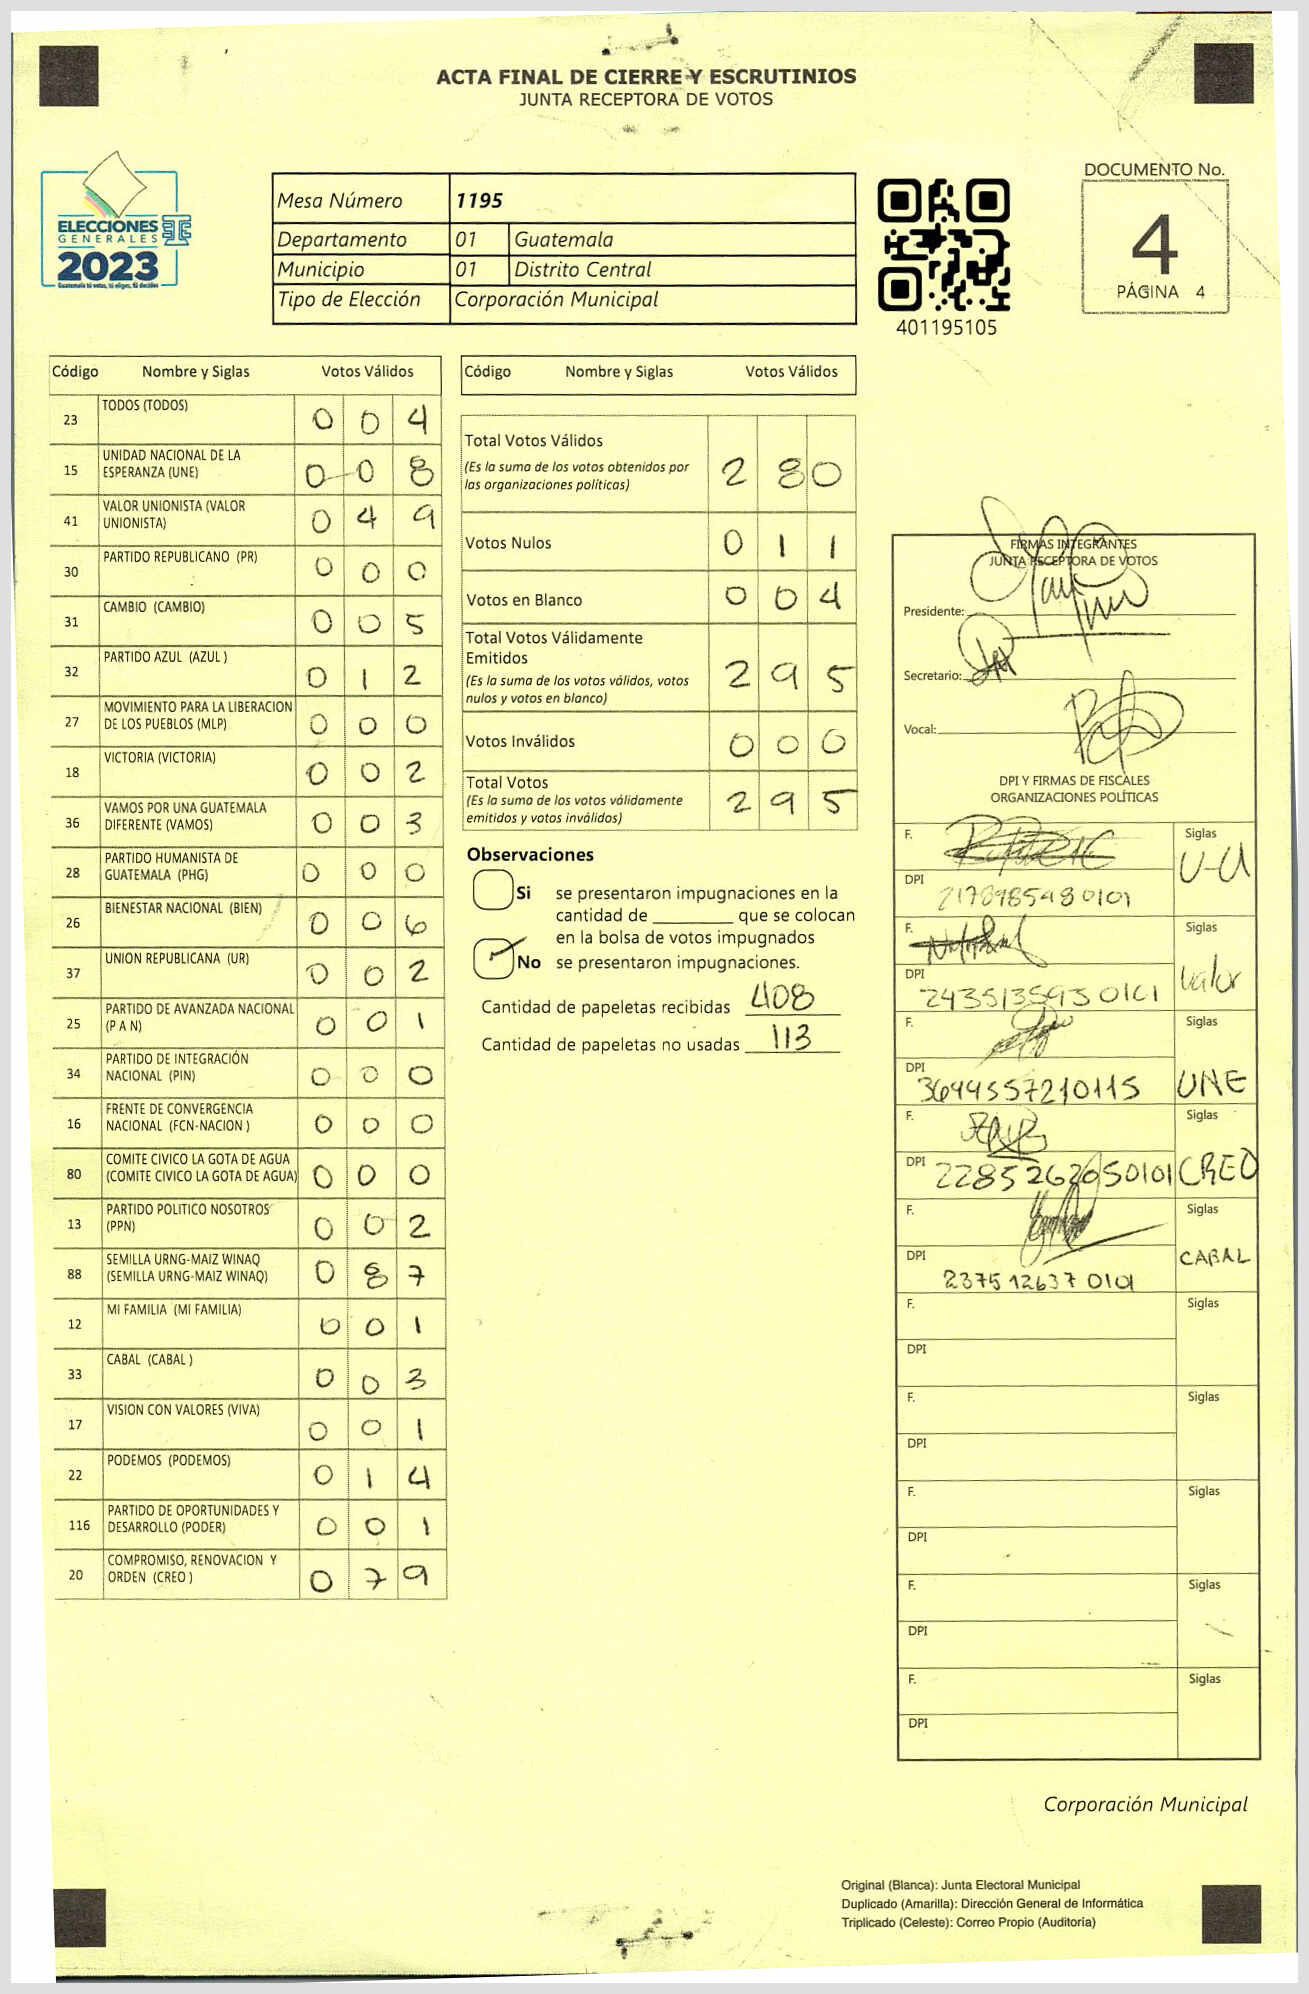 ACTA FINAL DE CIERRE Y ESCRUTINIOS
JUNTA RECEPTORA DE VOTOS
ELECCIONES
GENERALES
2023
Guatemala tú votas, tú eliges, tú decides
Mesa Número 1195
Departamento 01 Guatemala
Municipio 01 Distrito Central
Tipo de Elección Corporación Municipal
401195105
DOCUMENTO No.
4
PÁGINA 4
Código Nombre y Siglas Votos Válidos
23 TODOS (TODOS) 0 0 4
15 UNIDAD NACIONAL DE LA ESPERANZA (UNE) 0 0 8
41 VALOR UNIONISTA (VALOR UNIONISTA) 0 4 9
30 PARTIDO REPUBLICANO (PR) 0 0 0
31 CAMBIO (CAMBIO) 0 0 5
32 PARTIDO AZUL (AZUL ) 0 1 2
27 MOVIMIENTO PARA LA LIBERACION DE LOS PUEBLOS (MLP) 0 0 0
18 VICTORIA (VICTORIA) 0 0 2
36 VAMOS POR UNA GUATEMALA DIFERENTE (VAMOS) 0 0 3
28 PARTIDO HUMANISTA DE GUATEMALA (PHG) 0 0 0
26 BIENESTAR NACIONAL (BIEN) 0 0 6
37 UNION REPUBLICANA (UR) 0 0 2
25 PARTIDO DE AVANZADA NACIONAL (P A N) 0 0 1
34 PARTIDO DE INTEGRACIÓN NACIONAL (PIN) 0 0 0
16 FRENTE DE CONVERGENCIA NACIONAL (FCN-NACION ) 0 0 0
80 COMITE CIVICO LA GOTA DE AGUA (COMITE CIVICO LA GOTA DE AGUA) 0 0 0
13 PARTIDO POLITICO NOSOTROS (PPN) 0 0 2
88 SEMILLA URNG-MAIZ WINAQ (SEMILLA URNG-MAIZ WINAQ) 0 8 7
12 MI FAMILIA (MI FAMILIA) 0 0 1
33 CABAL (CABAL ) 0 0 3
17 VISION CON VALORES (VIVA) 0 0 1
22 PODEMOS (PODEMOS) 0 1 4
116 PARTIDO DE OPORTUNIDADES Y DESARROLLO (PODER) 0 0 1
20 COMPROMISO, RENOVACION Y ORDEN (CREO ) 0 7 9
Código Nombre y Siglas Votos Válidos
Total Votos Válidos 2 8 0
(Es la suma de los votos obtenidos por
las organizaciones políticas)
Votos Nulos 0 1 1
Votos en Blanco 0 0 4
Total Votos Válidamente
Emitidos 2 9 5
(Es la suma de los votos válidos, votos
nulos y votos en blanco)
Votos Inválidos 0 0 0
Total Votos 2 9 5
(Es la suma de los votos válidamente
emitidos y votos inválidos)
Observaciones
Si se presentaron impugnaciones en la
cantidad de ________ que se colocan
en la bolsa de votos impugnados
No se presentaron impugnaciones.
Cantidad de papeletas recibidas 408
Cantidad de papeletas no usadas 113
FIRMAS INTEGRANTES
JUNTA RECEPTORA DE VOTOS
Presidente:
Secretario:
Vocal:
DPI Y FIRMAS DE FISCALES
ORGANIZACIONES POLÍTICAS
F. Siglas
U-U
DPI 2178985480101
F. Siglas
Valor
DPI 2435135930101
F. Siglas
DPI 3644557210115 UNE
F. Siglas
DPI 2285262050101 CREO
F. Siglas
CABAL
DPI 2375126370101
F. Siglas
DPI
F. Siglas
DPI
F. Siglas
DPI
F. Siglas
DPI
F. Siglas
DPI
Corporación Municipal
Original (Blanca): Junta Electoral Municipal
Duplicado (Amarilla): Dirección General de Informática
Triplicado (Celeste): Correo Propio (Auditoría)